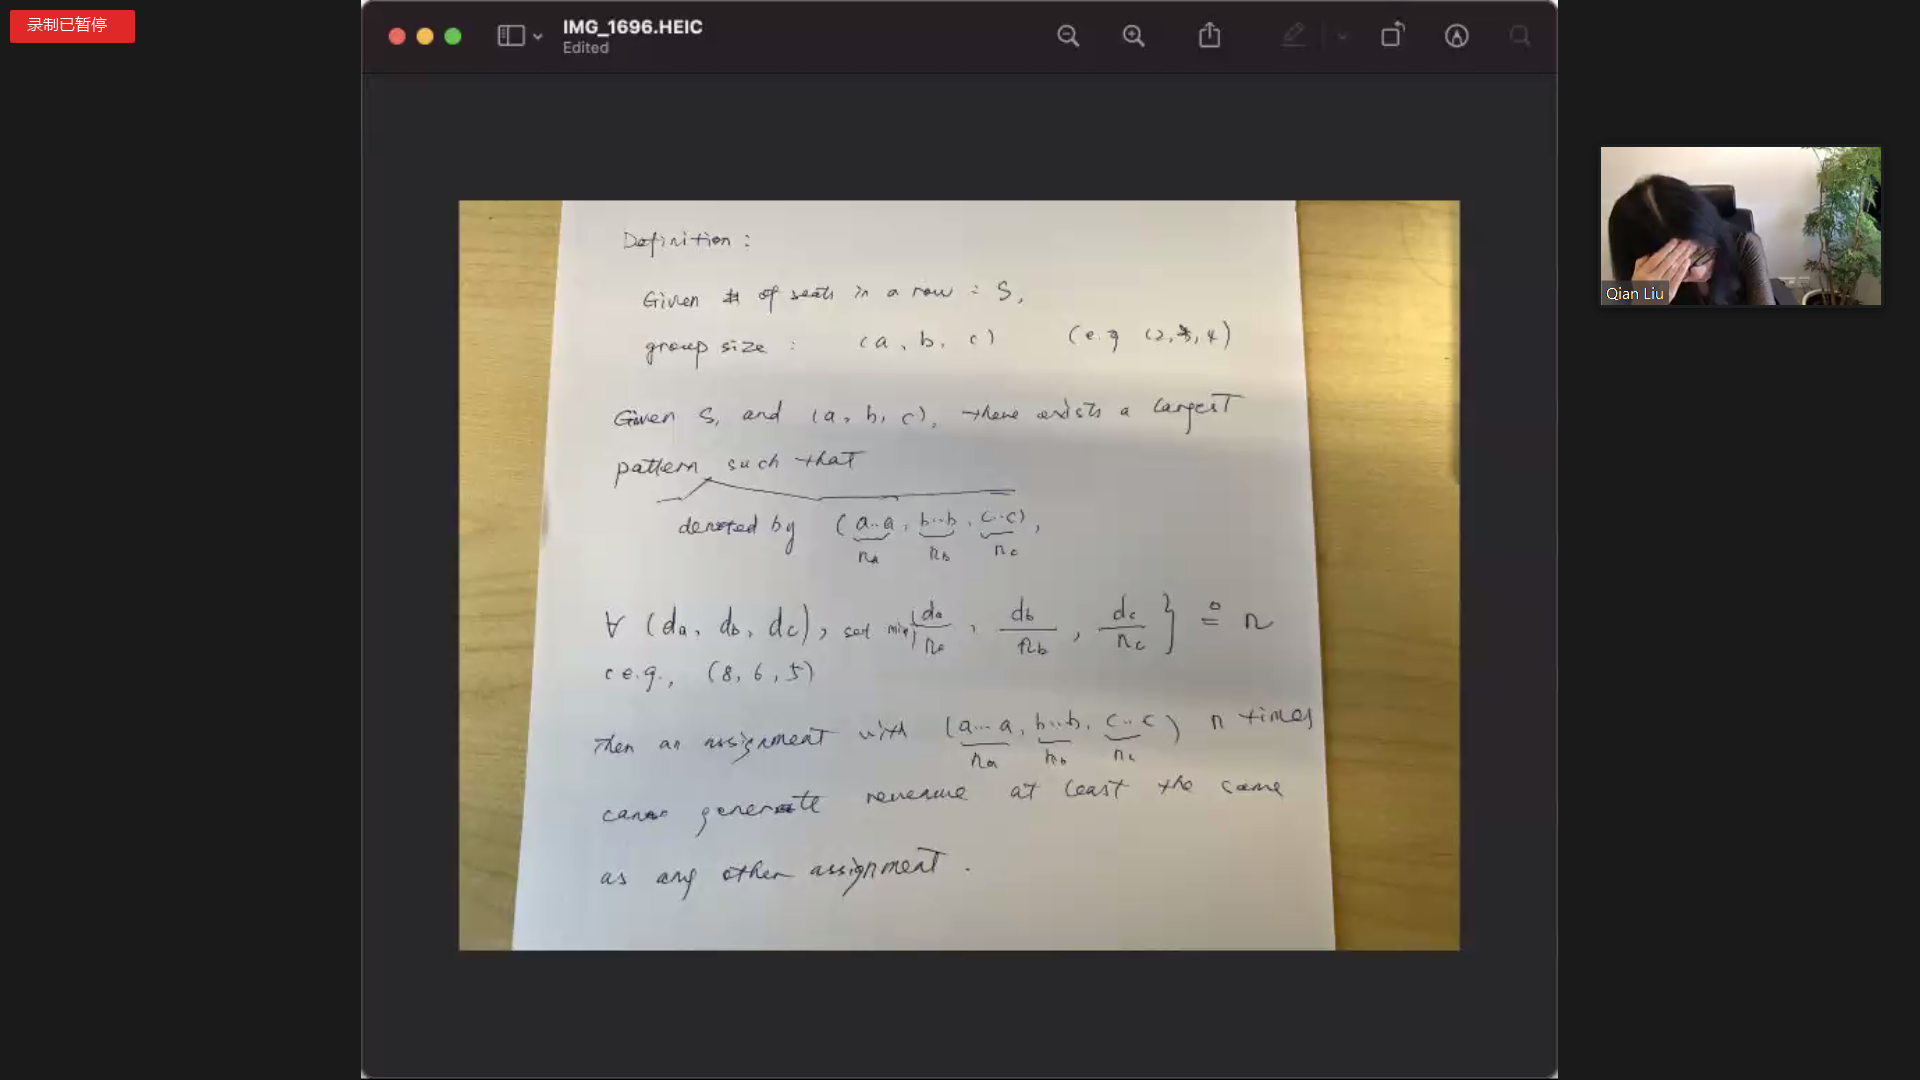 录制已暂停
IMG_1696.HEIC
Edited
Definition :
Given # of seats in a row : S,
group size : (a, b, c) (e.g (2,3,4)
Given S, and (a, b, c), there exists a largest
pattern such that
denoted by (a..a, b..b, c..c),
na nb nc
∀ (da, db, dc), set min{ da/na , db/nb , dc/nc } ≗ n
(e.g., (8, 6, 5)
then an assignment with (a...a, b...b, c..c) n times
na nb nc
can generate revenue at least the same
as any other assignment .
Qian Liu